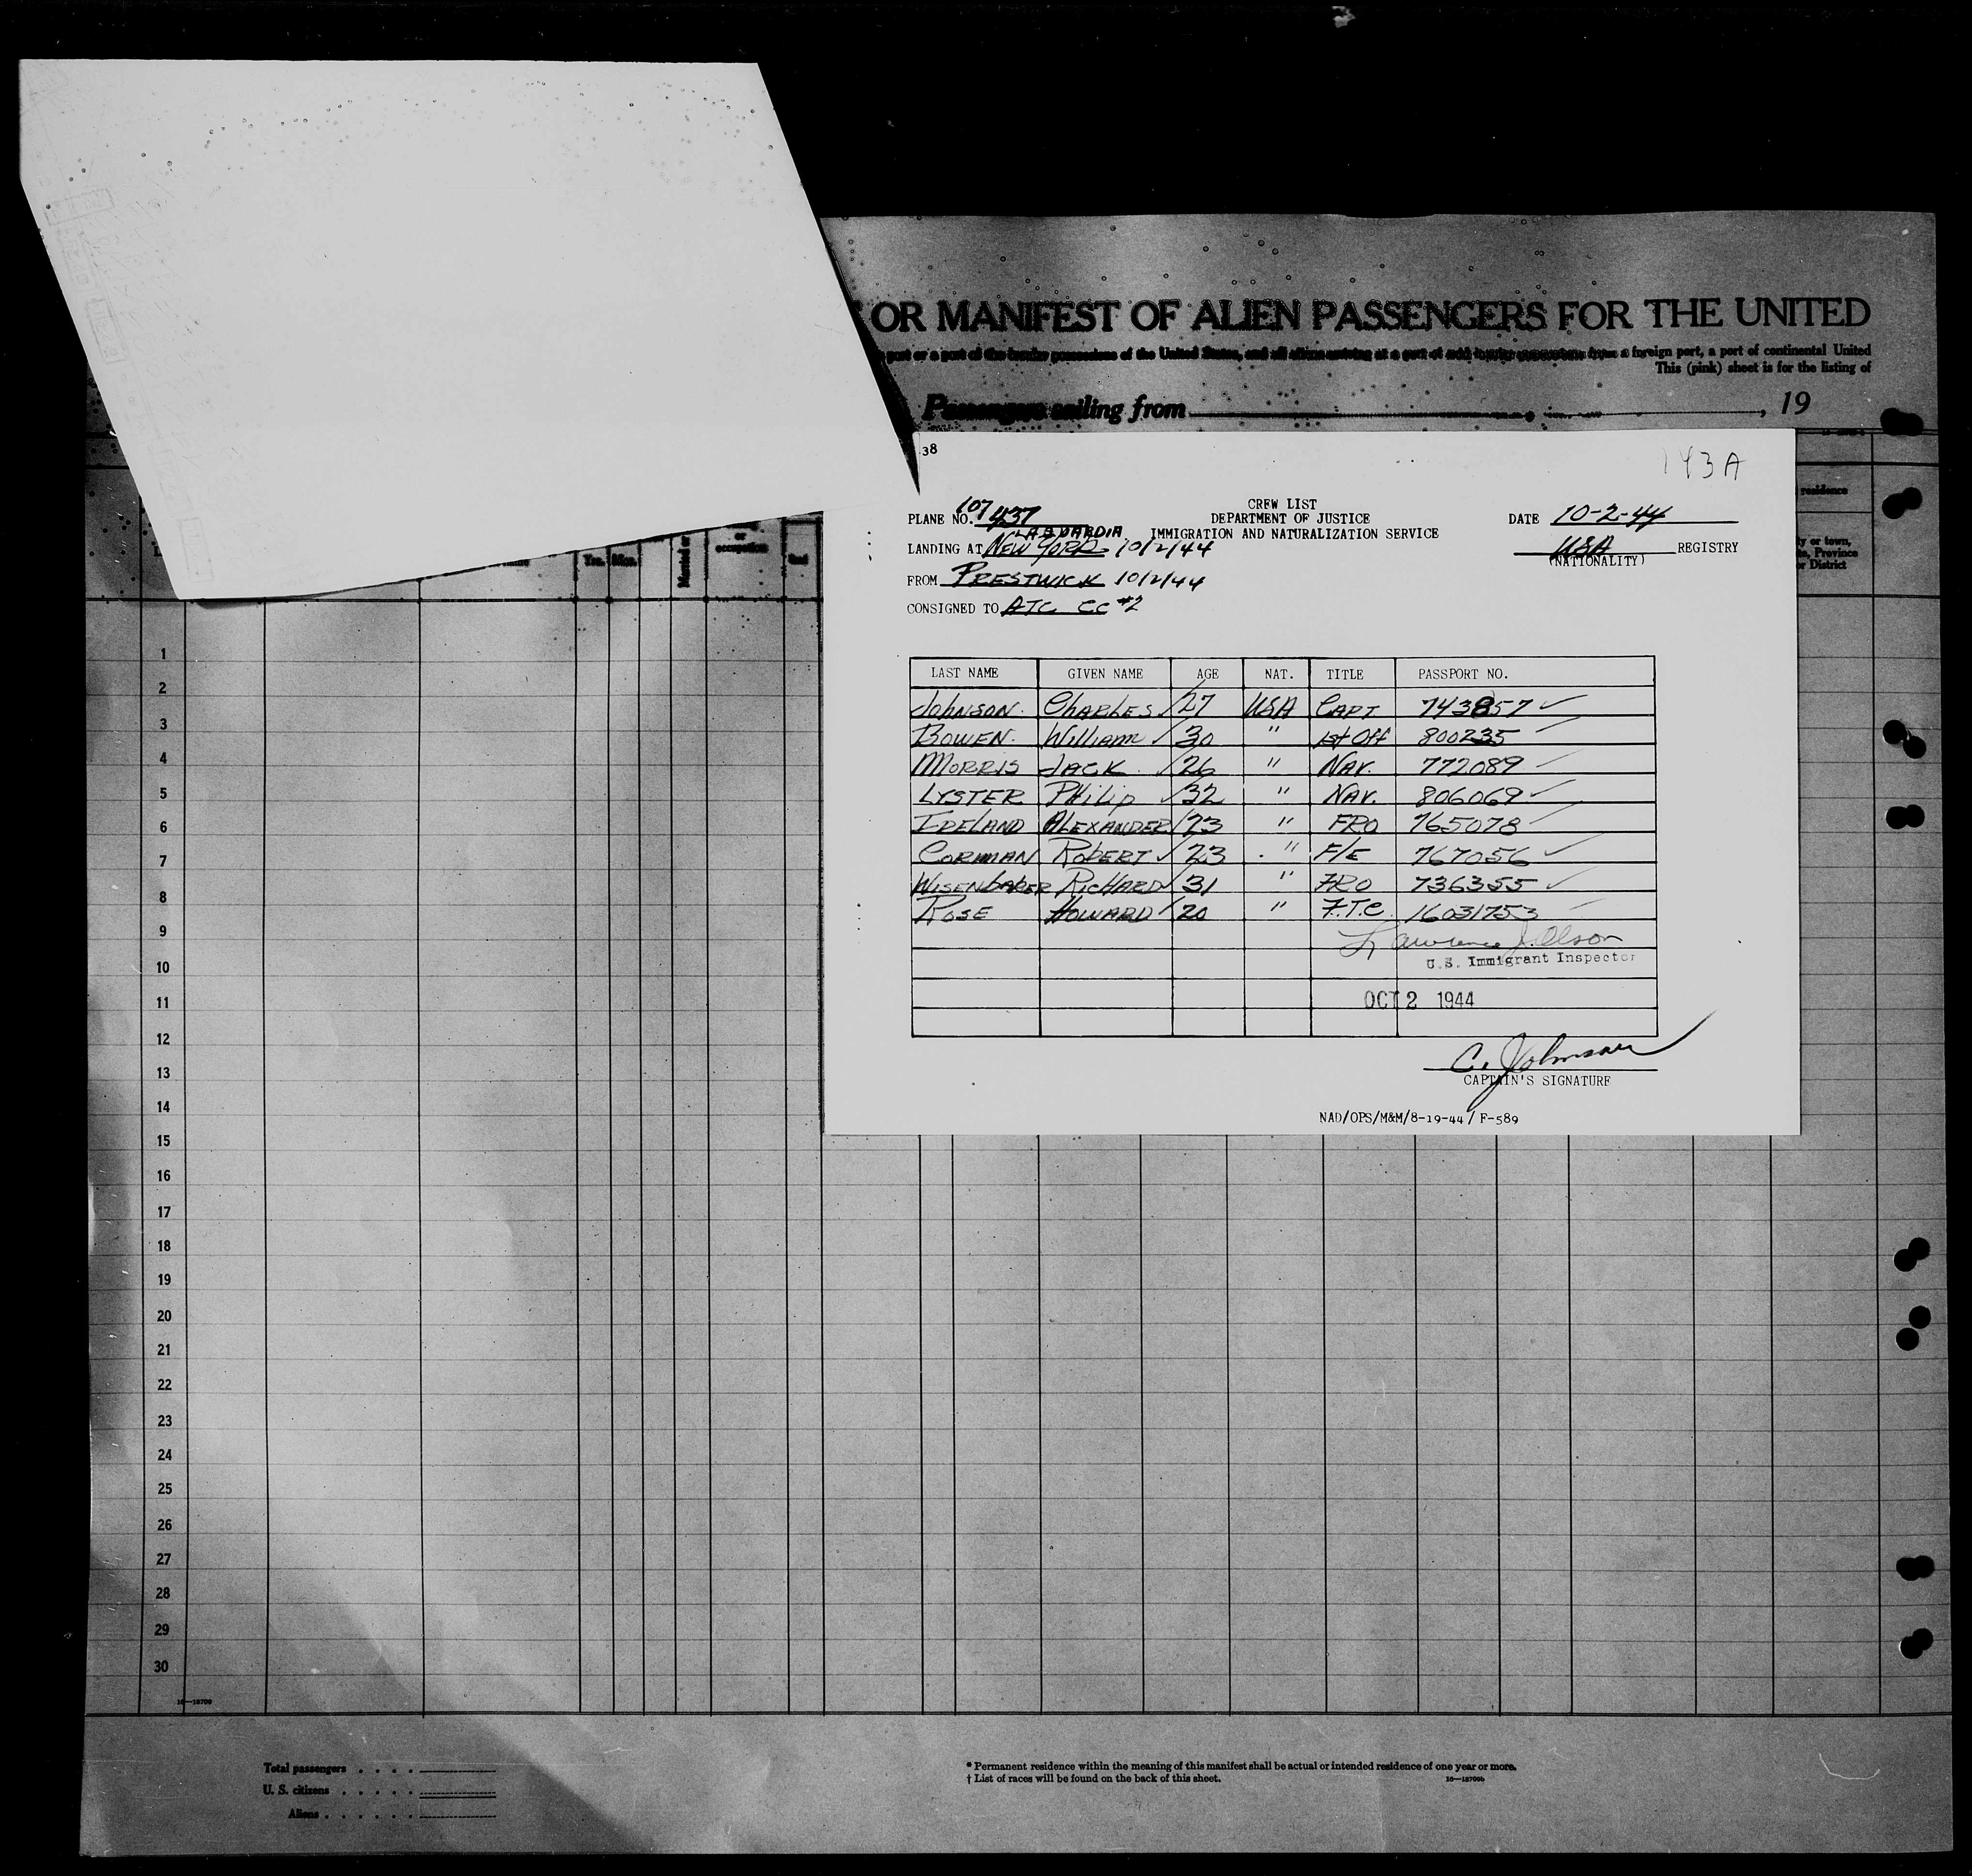 OR MANIFEST OF ALIEN PASSENGERS FOR THE UNITED
port or a part of the insular possessions of the United States, and all aliens arriving at a port of said insular possessions from a foreign port, a port of continental United
This (pink) sheet is for the listing of
Passengers sailing from , 19
38
143A
CREW LIST
DEPARTMENT OF JUSTICE
IMMIGRATION AND NATURALIZATION SERVICE
PLANE NO. 107437
DATE 10-2-44
LAGUARDIA
LANDING AT NEW YORK 10/2/44
USA REGISTRY
(NATIONALITY)
FROM PRESTWICK 10/2/44
CONSIGNED TO ATC CC #2
LAST NAME GIVEN NAME AGE NAT. TITLE PASSPORT NO.
JOHNSON. CHARLES 27 USA CAPT 743857
BOWEN. William 30 " 1st Off 800235
MORRIS JACK. 26 " NAV. 772089
LYSTER PHilip 32 " NAV. 806069
IRELAND ALEXANDER 23 " FRO 765078
CORMAN ROBERT 23 " F/E 767056
WISENBAKER RICHARD 31 " FRO 736355
ROSE HOWARD 20 " F.T.C. 16031753
Lawrence J. Olson
U.S. Immigrant Inspector
OCT 2 1944
C. Johnson
CAPTAIN'S SIGNATURE
NAD/OPS/M&M/8-19-44/ F-589
residence
y or town,
te, Province
or District
or
occupation
Yrs. Mos.
Married or
Read
1
2
3
4
5
6
7
8
9
10
11
12
13
14
15
16
17
18
19
20
21
22
23
24
25
26
27
28
29
30
16—18700
Total passengers . . . .
U. S. citizens . . . . .
Aliens . . . . . .
* Permanent residence within the meaning of this manifest shall be actual or intended residence of one year or more.
† List of races will be found on the back of this sheet.
16—18700b